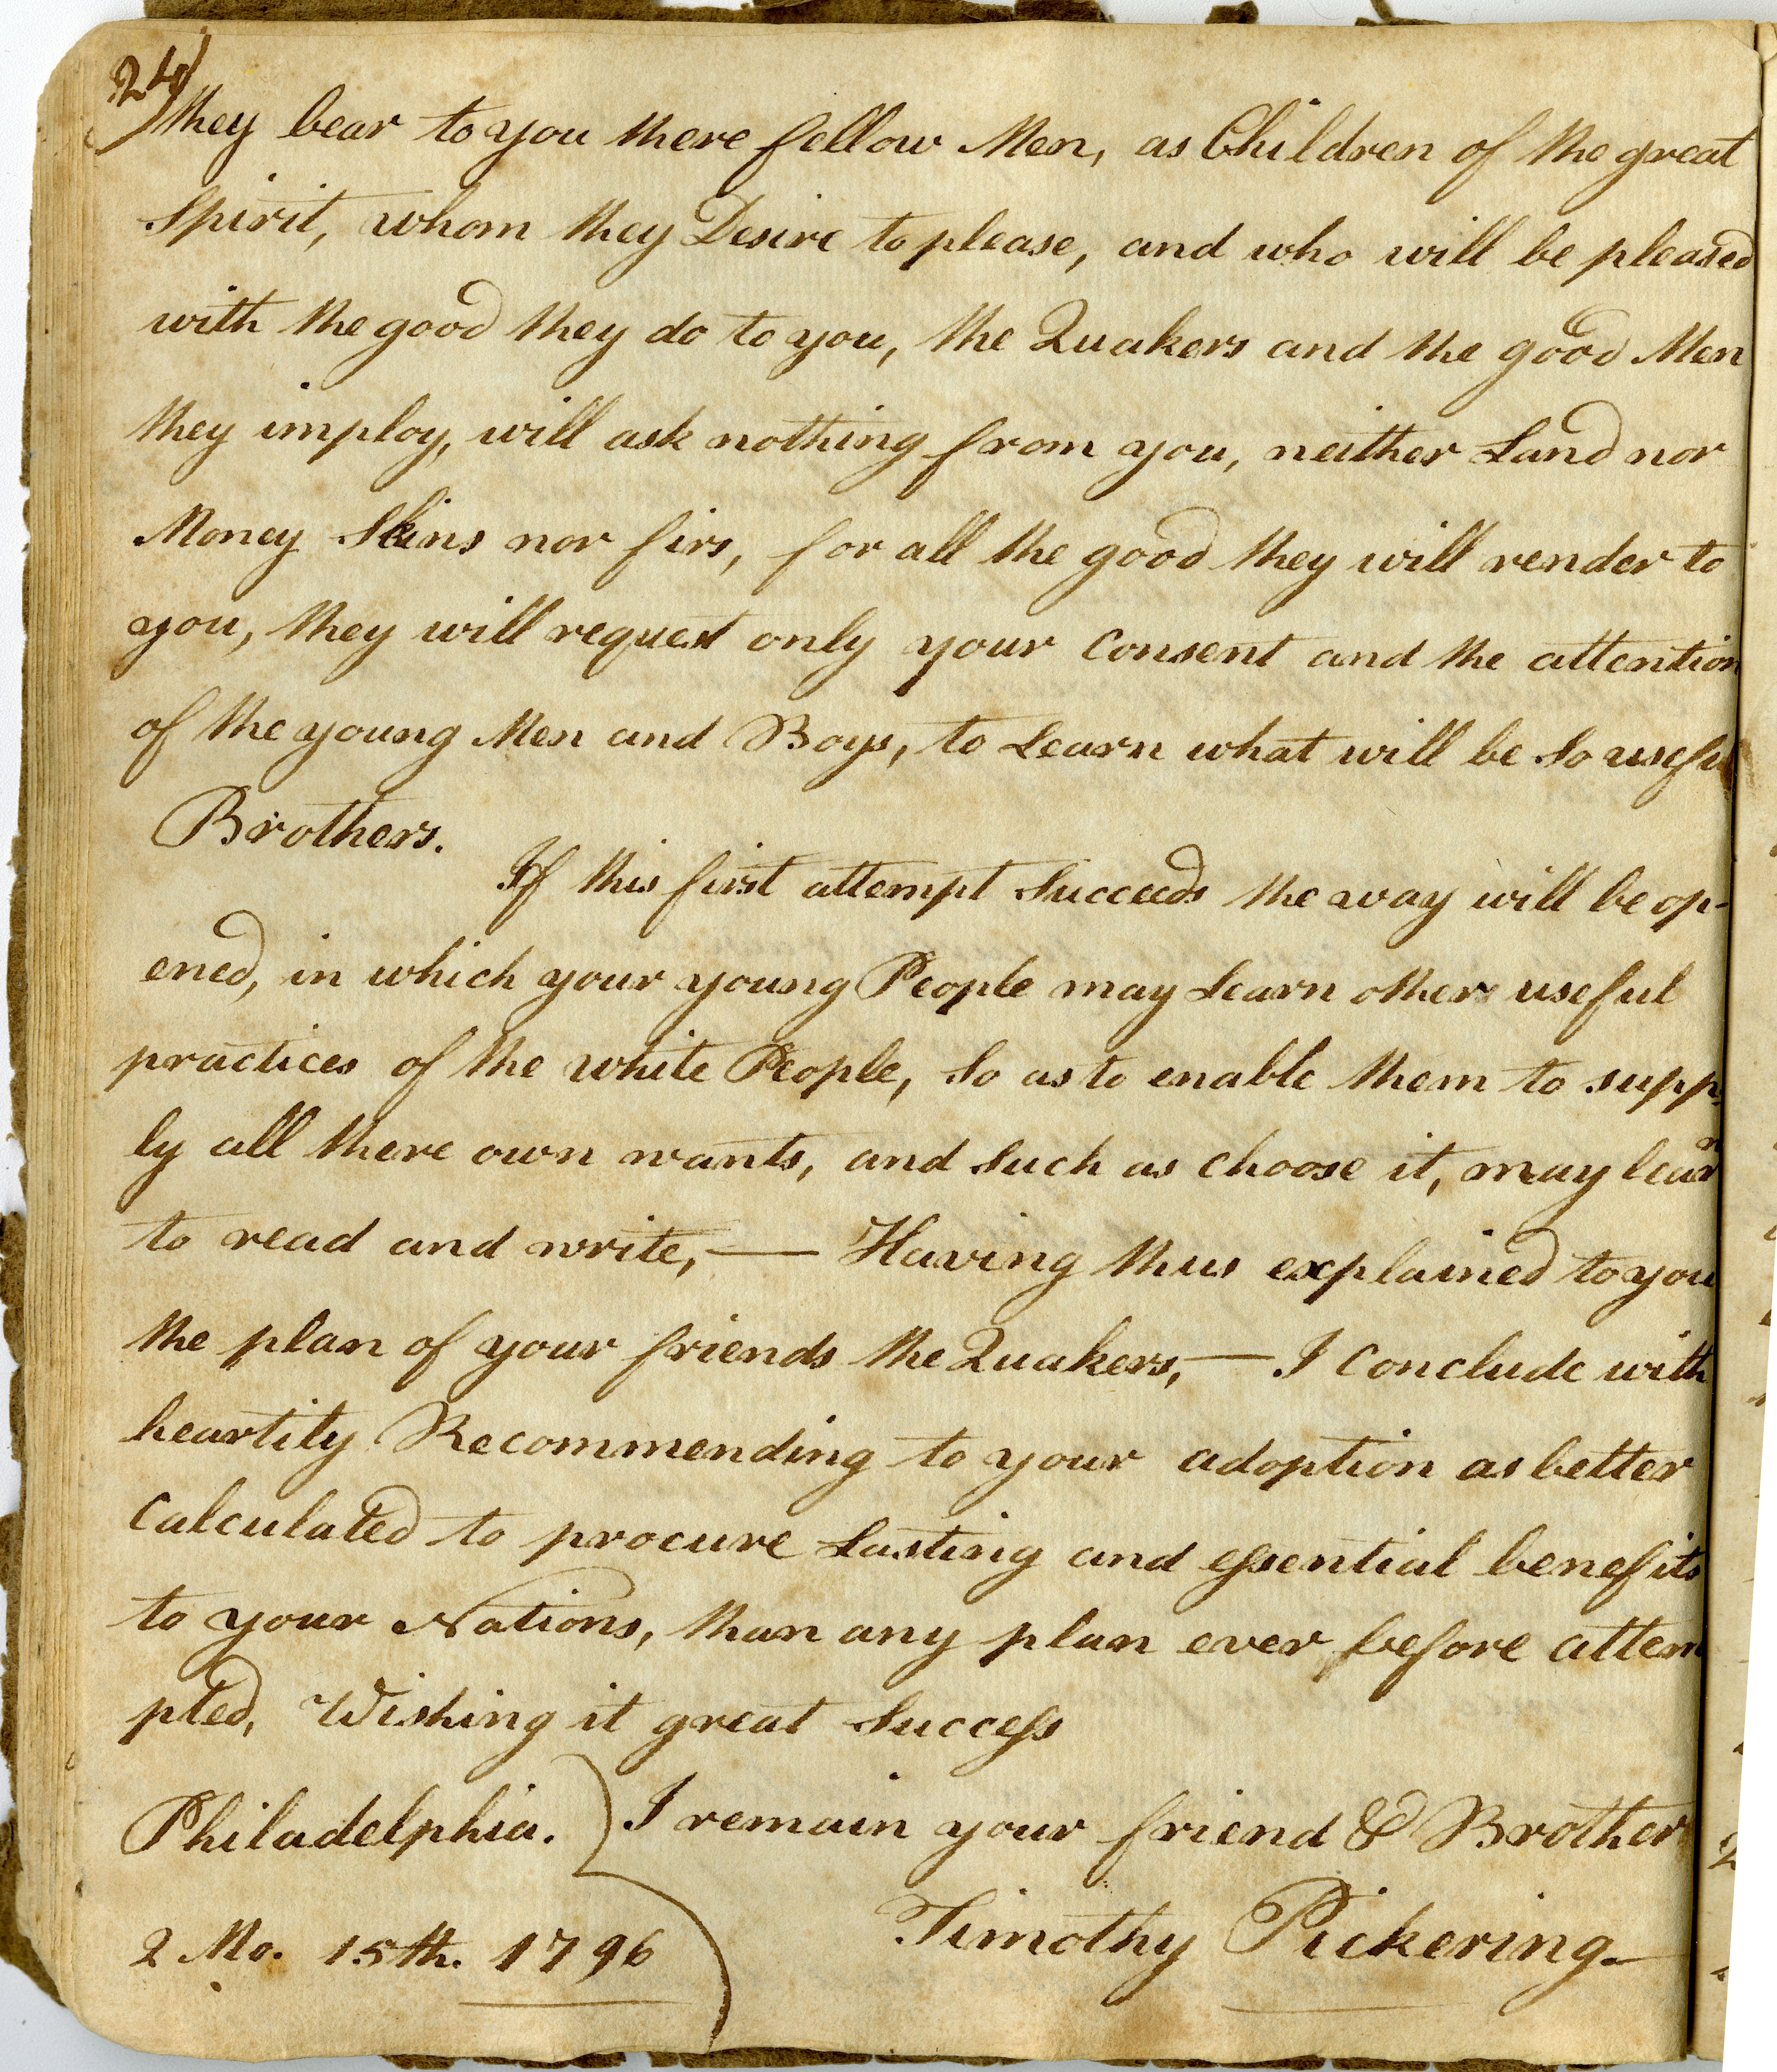 24)
they bear to you there fellow Men, as Children of the great
Spirit, whom they Desire to please, and who will be pleased
with the good they do to you, the Quakers and the good Men
they imploy, will ask nothing from you, neither Land nor
Money Skins nor firs, for all the good they will render to
you, they will request only your Consent and the attention
of the young Men and Boys, to Learn what will be So useful
Brothers.
If this first attempt Succeeds the way will be op-
ened, in which your young People may Learn other useful
practices of the white People, So as to enable them to supp-
ly all there own wants, and Such as Choose it, may learn
to read and write, — Having thus explained to you
the plan of your friends the Quakers, — I Conclude with
heartily Recommending to your adoption as better
Calculated to procure Lasting and essential benefits
to your Nations, than any plan ever before attem
pted, Wishing it great Success
Philadelphia. } I remain your friend & Brother
2 Mo. 15th. 1796 Timothy Pickering